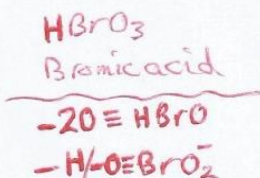 HBrO₃
Bromic acid
-2O ≡ HBrO
- H/-O≡BrO₂⁻